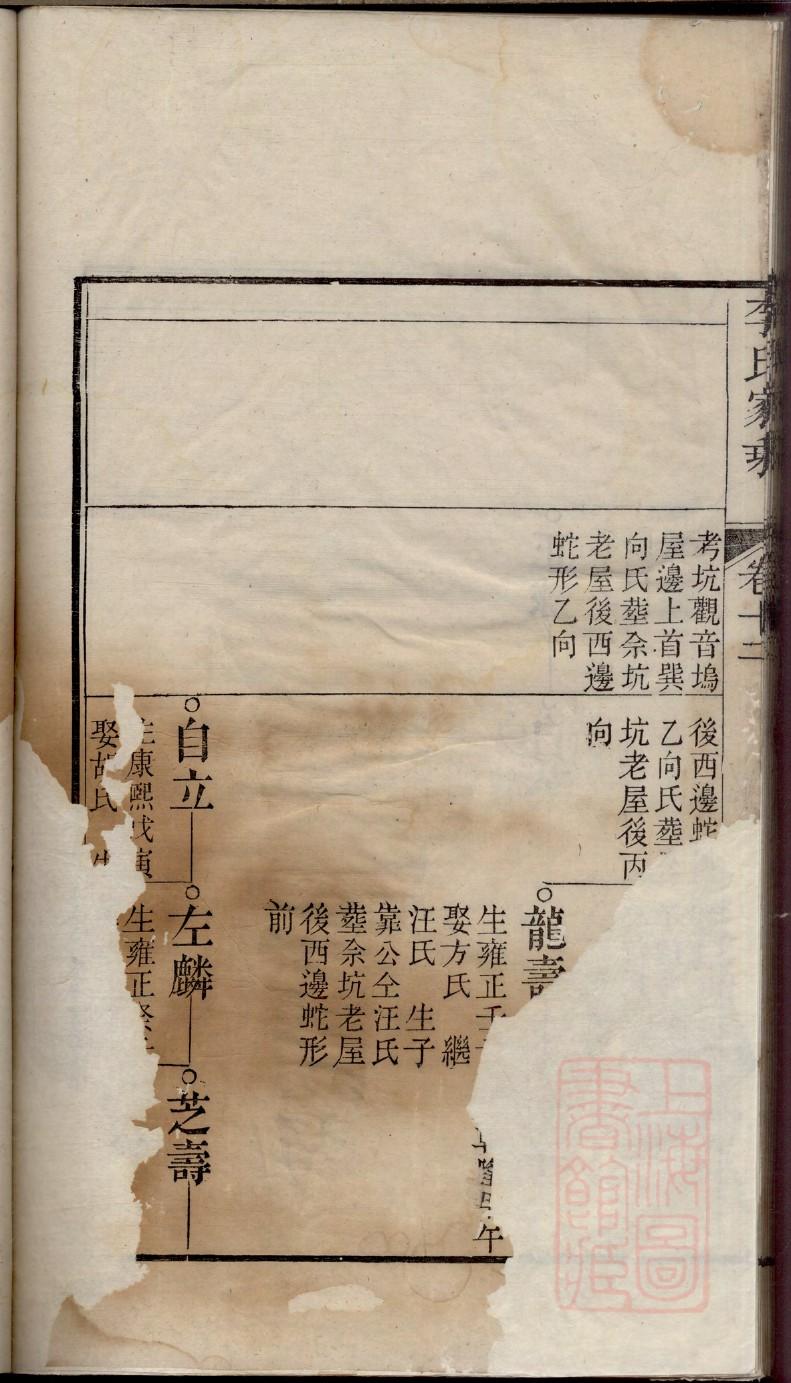 李氏家乘
卷十二
考坑觀音塢
屋邊上首巽
向氏塟佘坑
老屋後西邊
蛇形乙向
後西邊蛇
乙向氏塟
坑老屋後丙
向
龍壽
生雍正壬
娶方氏 繼
汪氏 生子
靠公仝汪氏
塟佘坑老屋
後西邊蛇形
前
午
自立
生康熙戊寅
娶胡氏 生
左麟
生雍正癸
芝壽
上海圖
書館